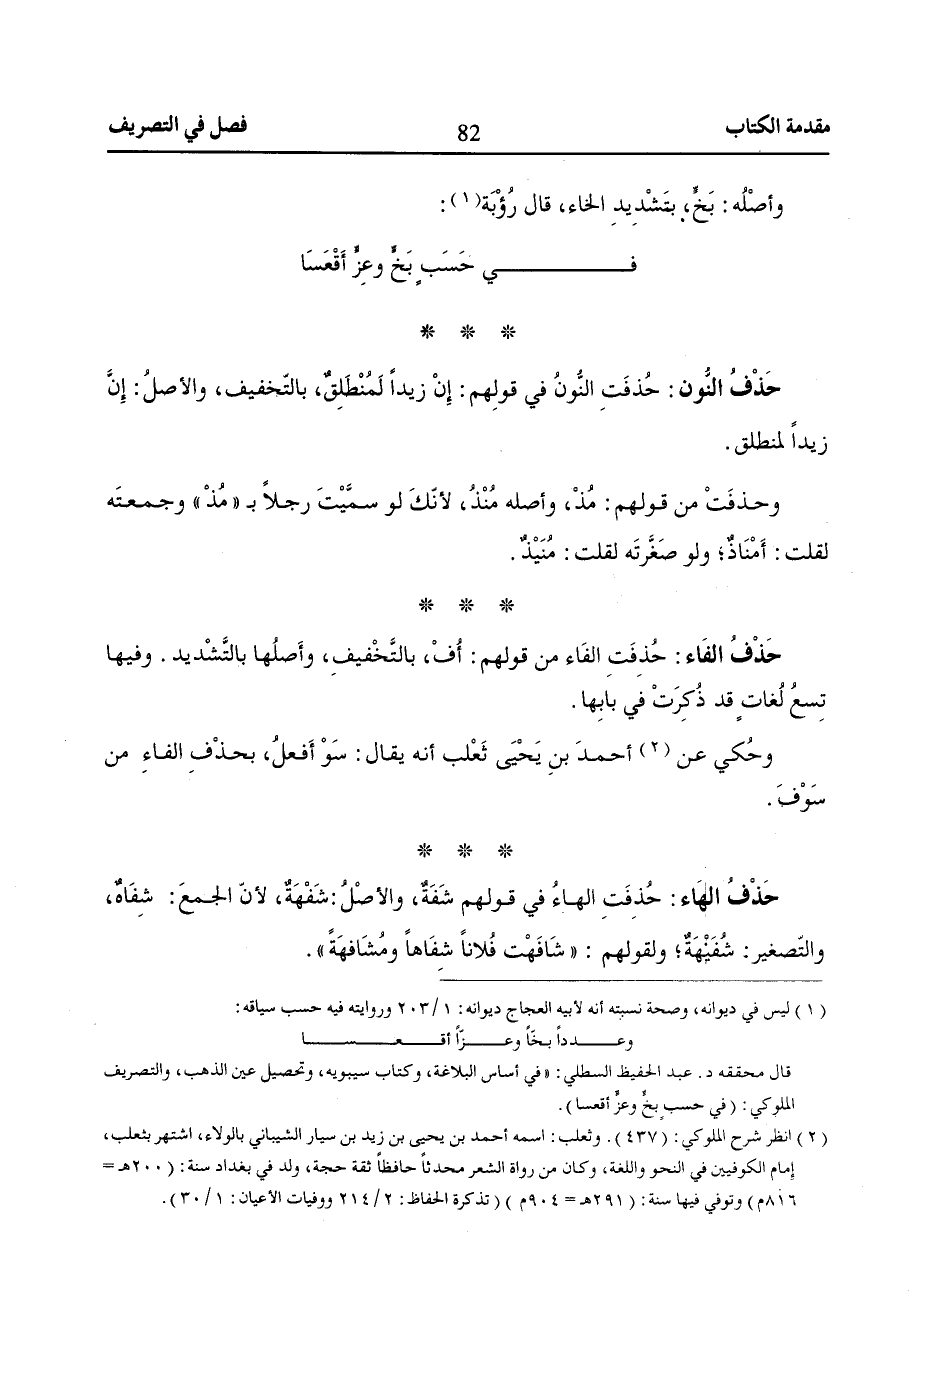 مقدمة الكتاب 82 فصل في التصريف
وأصْلُه: بَخٍّ، بِتَشْدِيدِ الخاء، قال رُؤْبَة(١):
فـــــــــــي حَسَبٍ بَخٍّ وعِزٍّ أَقْعَسَا
* * *
حَذْفُ النُّون: حُذفَتِ النُّونُ في قولهم: إِنْ زيداً لَمُنْطَلِقٌ، بالتّخفيف، والأصلُ: إِنَّ
زيداً لمنطلق.
وحذفَتْ من قولهم: مُذْ، وأصله مُنْذُ، لأنّكَ لو سمَّيْتَ رجلاً بـ «مُذْ» وجمعتَه
لقلت: أَمْنَاذٌ؛ ولو صَغَّرتَه لقلت: مُنَيْذٌ.
* * *
حَذْفُ الفَاء: حُذِفَتِ الفَاء من قولهم: أُفْ، بالتَّخْفيفِ، وأصلُها بالتَّشْديد. وفيها
تِسعُ لُغاتٍ قد ذُكِرَتْ في بابها.
وحُكي عن (٢) أحمدَ بنِ يَحْيَى ثَعْلب أنه يقال: سَوْ أفعلُ، بحذْفِ الفاءِ من
سَوْفَ.
* * *
حَذْفُ الهَاء: حُذفَتِ الهاءُ في قولهم شَفَةٌ، والأصْلُ: شَفْهَةٌ، لأنّ الجمعَ: شفَاهٌ،
والتّصغير: شُفَيْهَةٌ؛ ولقولهم: «شَافَهْتُ فُلاناً شفَاهاً ومُشَافهَةً».
(١) ليس في ديوانه، وصحة نسبته أنه لأبيه العجاج ديوانه: ٢٠٣/١ وروايته فيه حسب سياقه:
وعـــدداً بخّاً وعـــزّاً أقـعـــســـا
قال محققه د. عبد الحفيظ السطلي: «في أساس البلاغة، وكتاب سيبويه، وتحصيل عين الذهب، والتصريف
الملوكي: (في حسبٍ بخٍّ وعزٍّ أقعسا).
(٢) انظر شرح الملوكي: (٤٣٧). وثعلب: اسمه أحمد بن يحيى بن زيد بن سيار الشيباني بالولاء، اشتهر بثعلب،
إمام الكوفيين في النحو واللغة، وكان من رواة الشعر محدثاً حافظاً ثقة حجة، ولد في بغداد سنة: (٢٠٠هـ =
٨١٦م) وتوفي فيها سنة: (٢٩١هـ = ٩٠٤م) (تذكرة الحفاظ: ٢١٤/٢ ووفيات الأعيان: ٣٠/١).